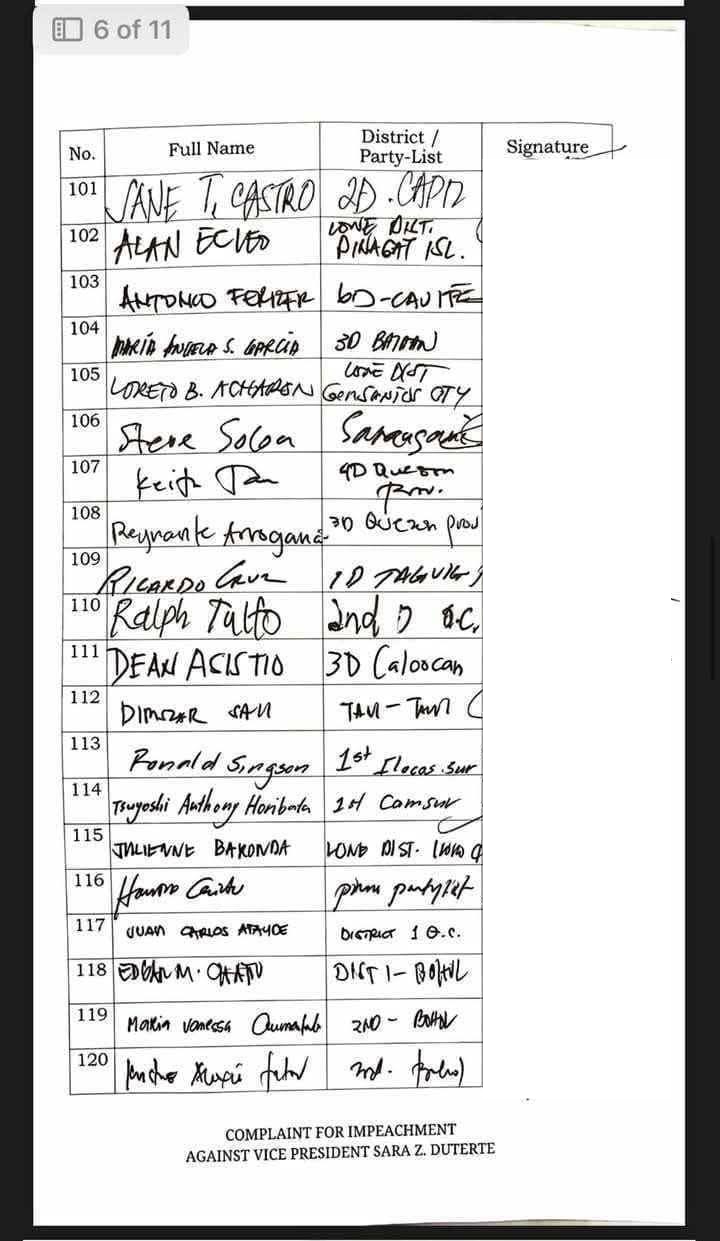 6 of 11
No. Full Name District / Party-List Signature
101 JANE T. CASTRO 2D. CAPIZ
102 ALAN ECLEO LONE DIST. DINAGAT ISL.
103 ANTONIO FERRER 6D-CAVITE
104 MARÍA ÁNGELA S. GARCIA 3D BATAAN
105 LORETO B. ACHARON LONE DIST GENSANTOS CITY
106 Steve Solon Sarangani
107 Keith Tan 4D Quezon Prov.
108 Reynante Arrogancia 3D Quezon prov
109 RICARDO CRUZ 1D TAGUIG
110 Ralph Tulfo 2nd D Q.C.
111 DEAN ASISTIO 3D Caloocan
112 DIMSZAR SALI TAWI-TAWI
113 Ronald Singson 1st Ilocos Sur
114 Tsuyoshi Anthony Horibata 1st Camsur
115 JULIENNE BARONDA LONE DIST. ILOILO
116 partylist
117 JUAN CARLOS ATAYDE DISTRICT 1 Q.C.
118 EDGAR M. CHATTO DIST 1- BOHOL
119 Maria Vanessa Aumentado 2ND - BOHOL
120 Alexie
COMPLAINT FOR IMPEACHMENT
AGAINST VICE PRESIDENT SARA Z. DUTERTE